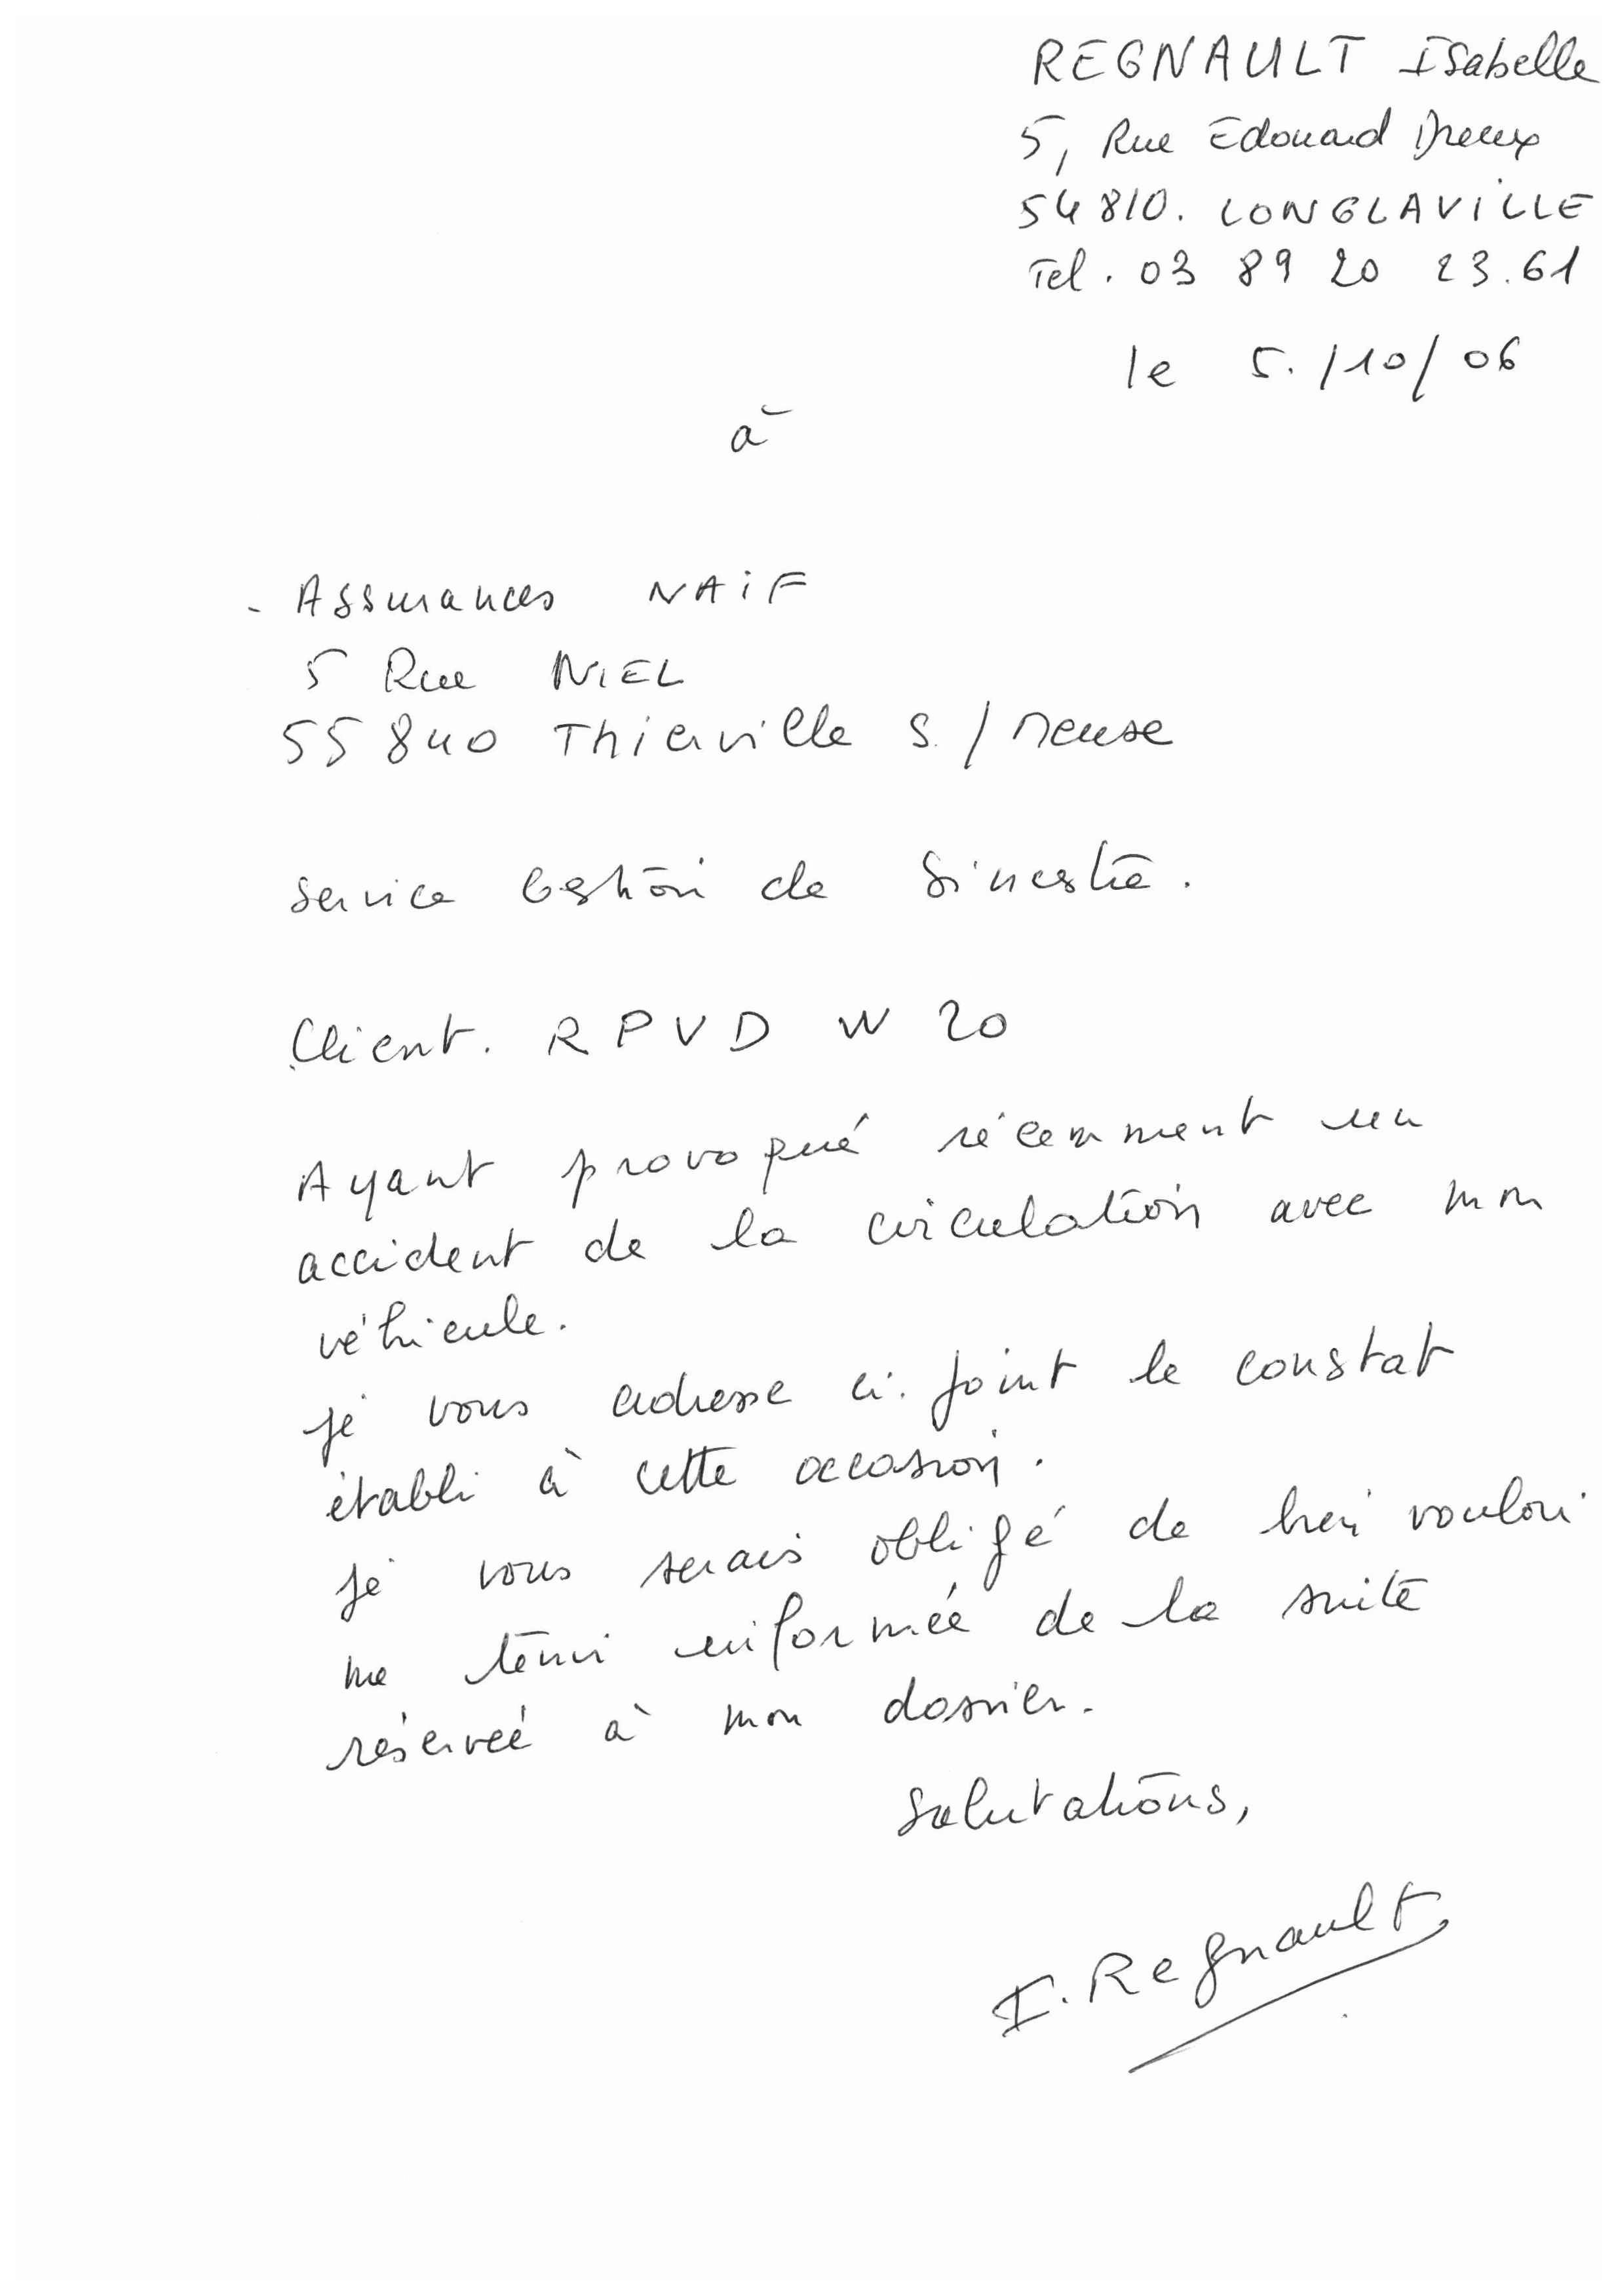 REGNAULT Isabelle
5, Rue Edouard Dreux
54810. LONGLAVILLE
Tel. 03 89 20 23.61
le 5./10/06
à
- Assurances NAiF
5 Rue NIEL
55840 Thierville S./Meuse
Service Gestion de Sinestre.
Client. RPVD W 20
Ayant provoqué récemment un
accident de la circulation avec mon
véhicule.
je vous adresse ci. joint le constat
établi à cette occasion.
je vous serais obligé de bien vouloir
me tenir informée de la suite
réservée à mon dossier.
Salutations,
I. Regnault